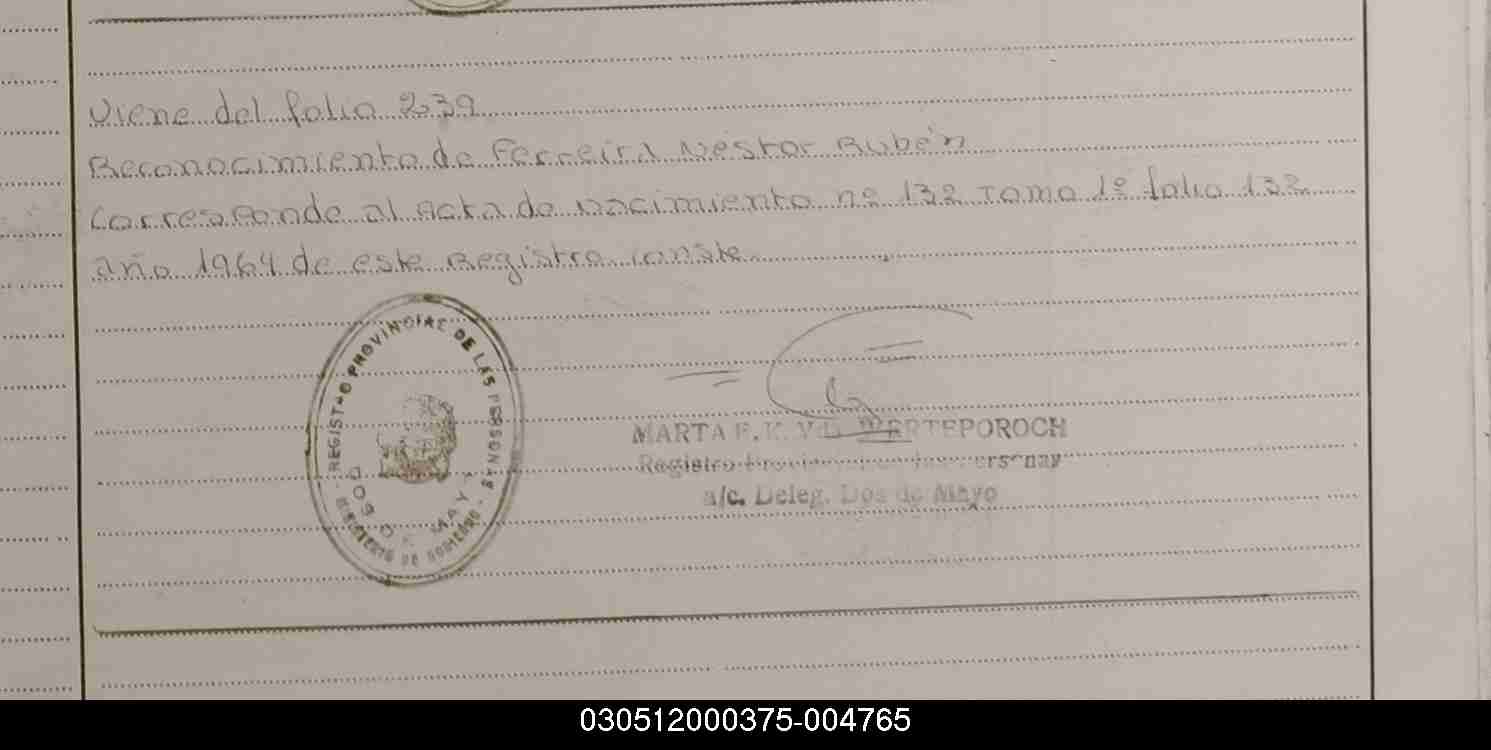 Viene del folio 239
Reconocimiento de Ferreira Nestor Rubén
Corresponde al Acta de nacimiento nº 132 Tomo 1º folio 132
año 1964 de este Registro conste
REGISTRO PROVINCIAL DE LAS PERSONAS
MINISTERIO DE GOBIERNO
DOS DE MAYO
MARTA E. K. V. D.
Registro Provincial de las Personas
a/c. Deleg. Dos de Mayo
030512000375-004765